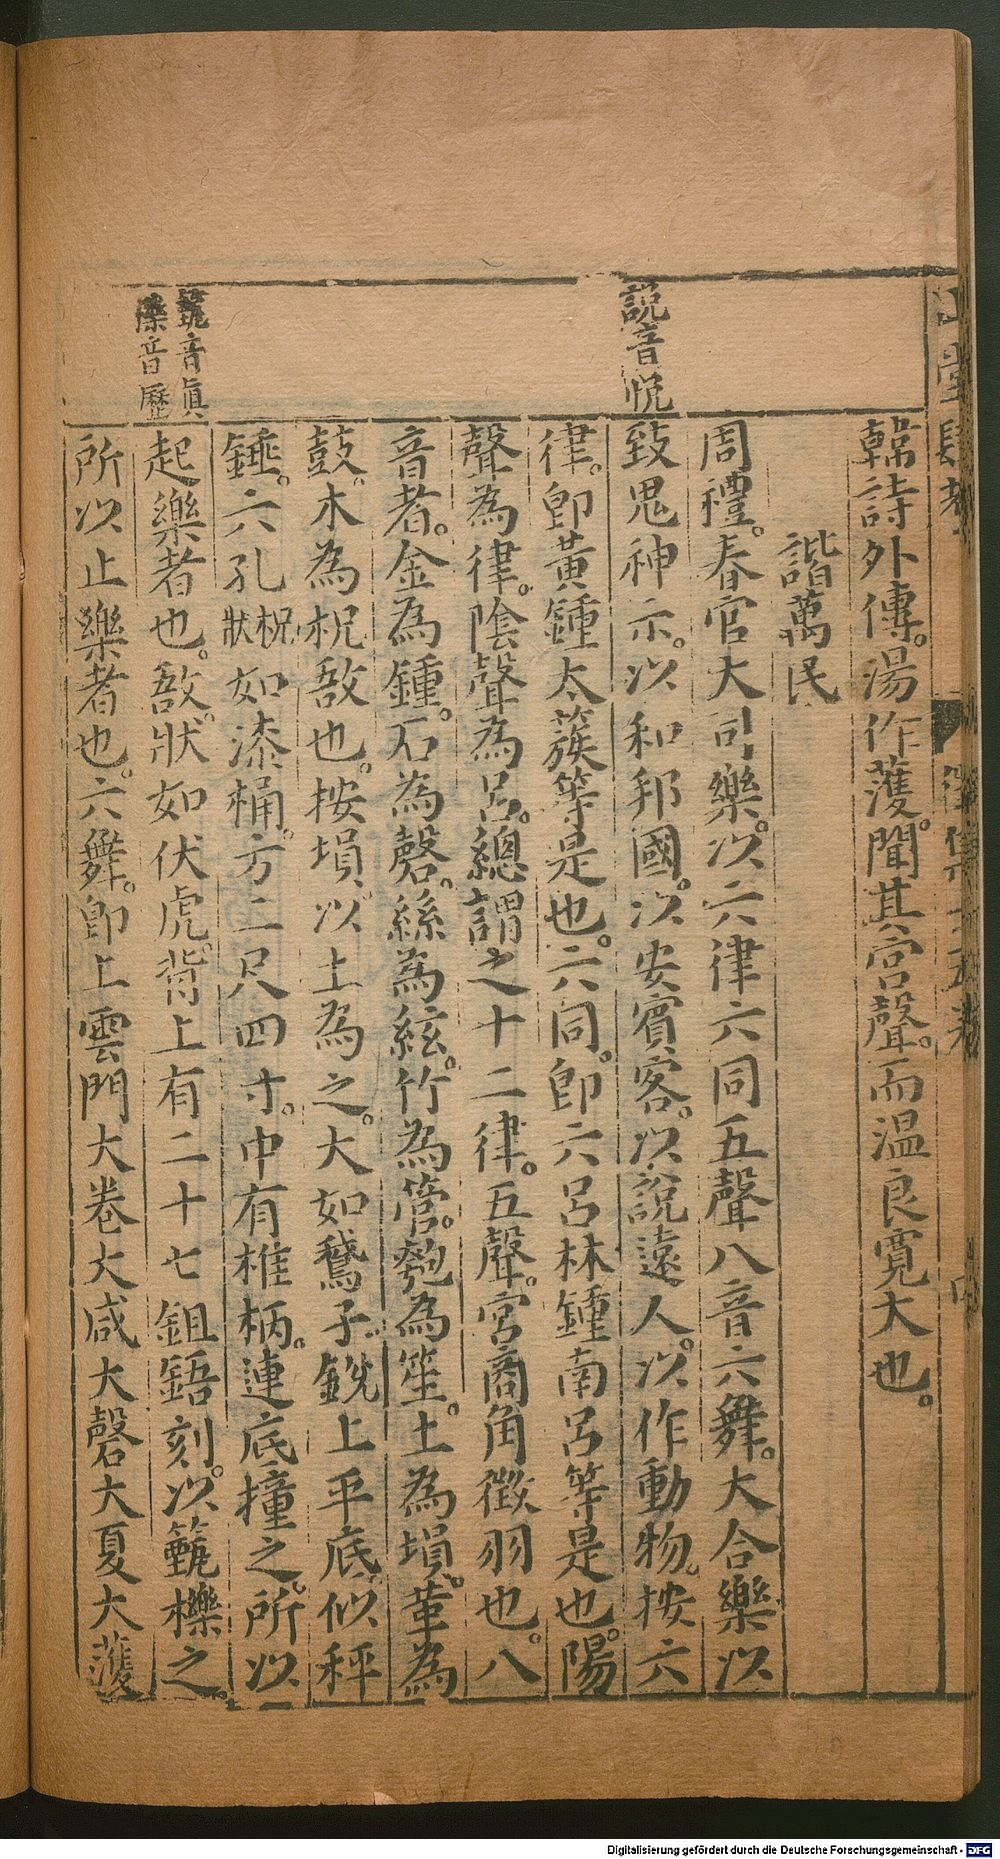 韓詩外傳。湯作護。聞其宮聲。而温良寬大也。
諧萬民
周禮。春官大司樂。以六律六同五聲八音六舞。大合樂以
說音悅
致鬼神示。以和邦國。以安賓客。以說遠人。以作動物。按六
律。卽黃鍾太蔟等是也。六同。卽六呂林鍾南呂等是也。陽
聲為律。陰聲為呂。總謂之十二律。五聲。宮商角徵羽也。八
音者。金為鍾。石為磬。絲為絃。竹為管。匏為笙。土為塤。革為
鼓。木為柷敔也。按塤。以土為之。大如鵞子。銳上平底。似秤
錘。六孔柷狀如漆桶。方二尺四寸。中有椎柄。連底撞之。所以
籈音真
櫟音歷
起樂者也。敔。狀如伏虎。背上有二十七鉏鋙刻。以籈櫟之。
所以止樂者也。六舞。卽上雲門大卷大咸大磬大夏大護
Digitalisierung gefördert durch die Deutsche Forschungsgemeinschaft - DFG